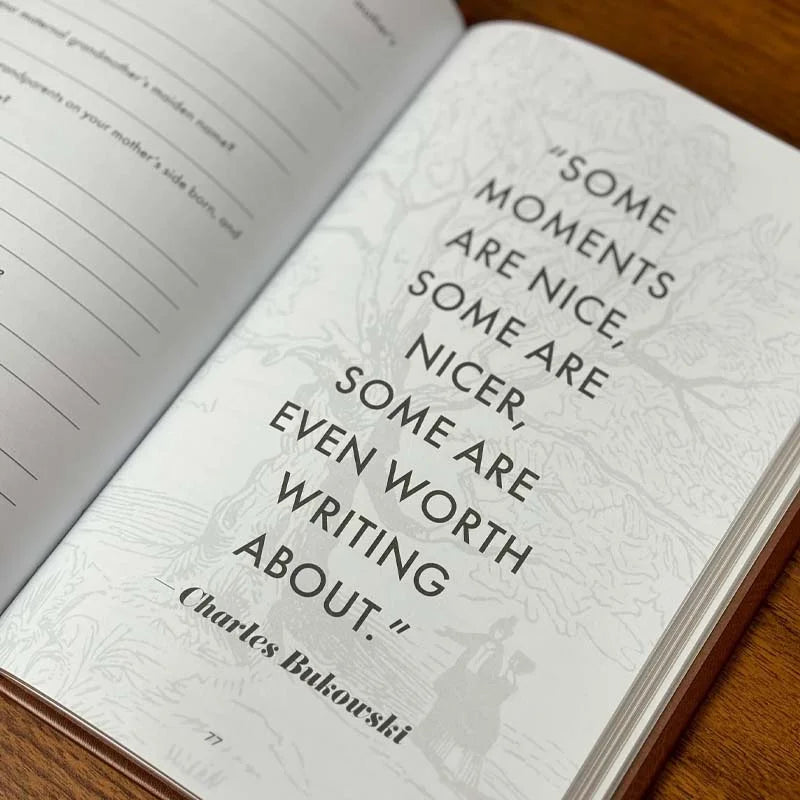 mother's
your maternal grandmother's maiden name?
grandparents on your mother's side born, and
?
"SOME
MOMENTS
ARE NICE,
SOME ARE
NICER,
SOME ARE
EVEN WORTH
WRITING
ABOUT."
— Charles Bukowski
77